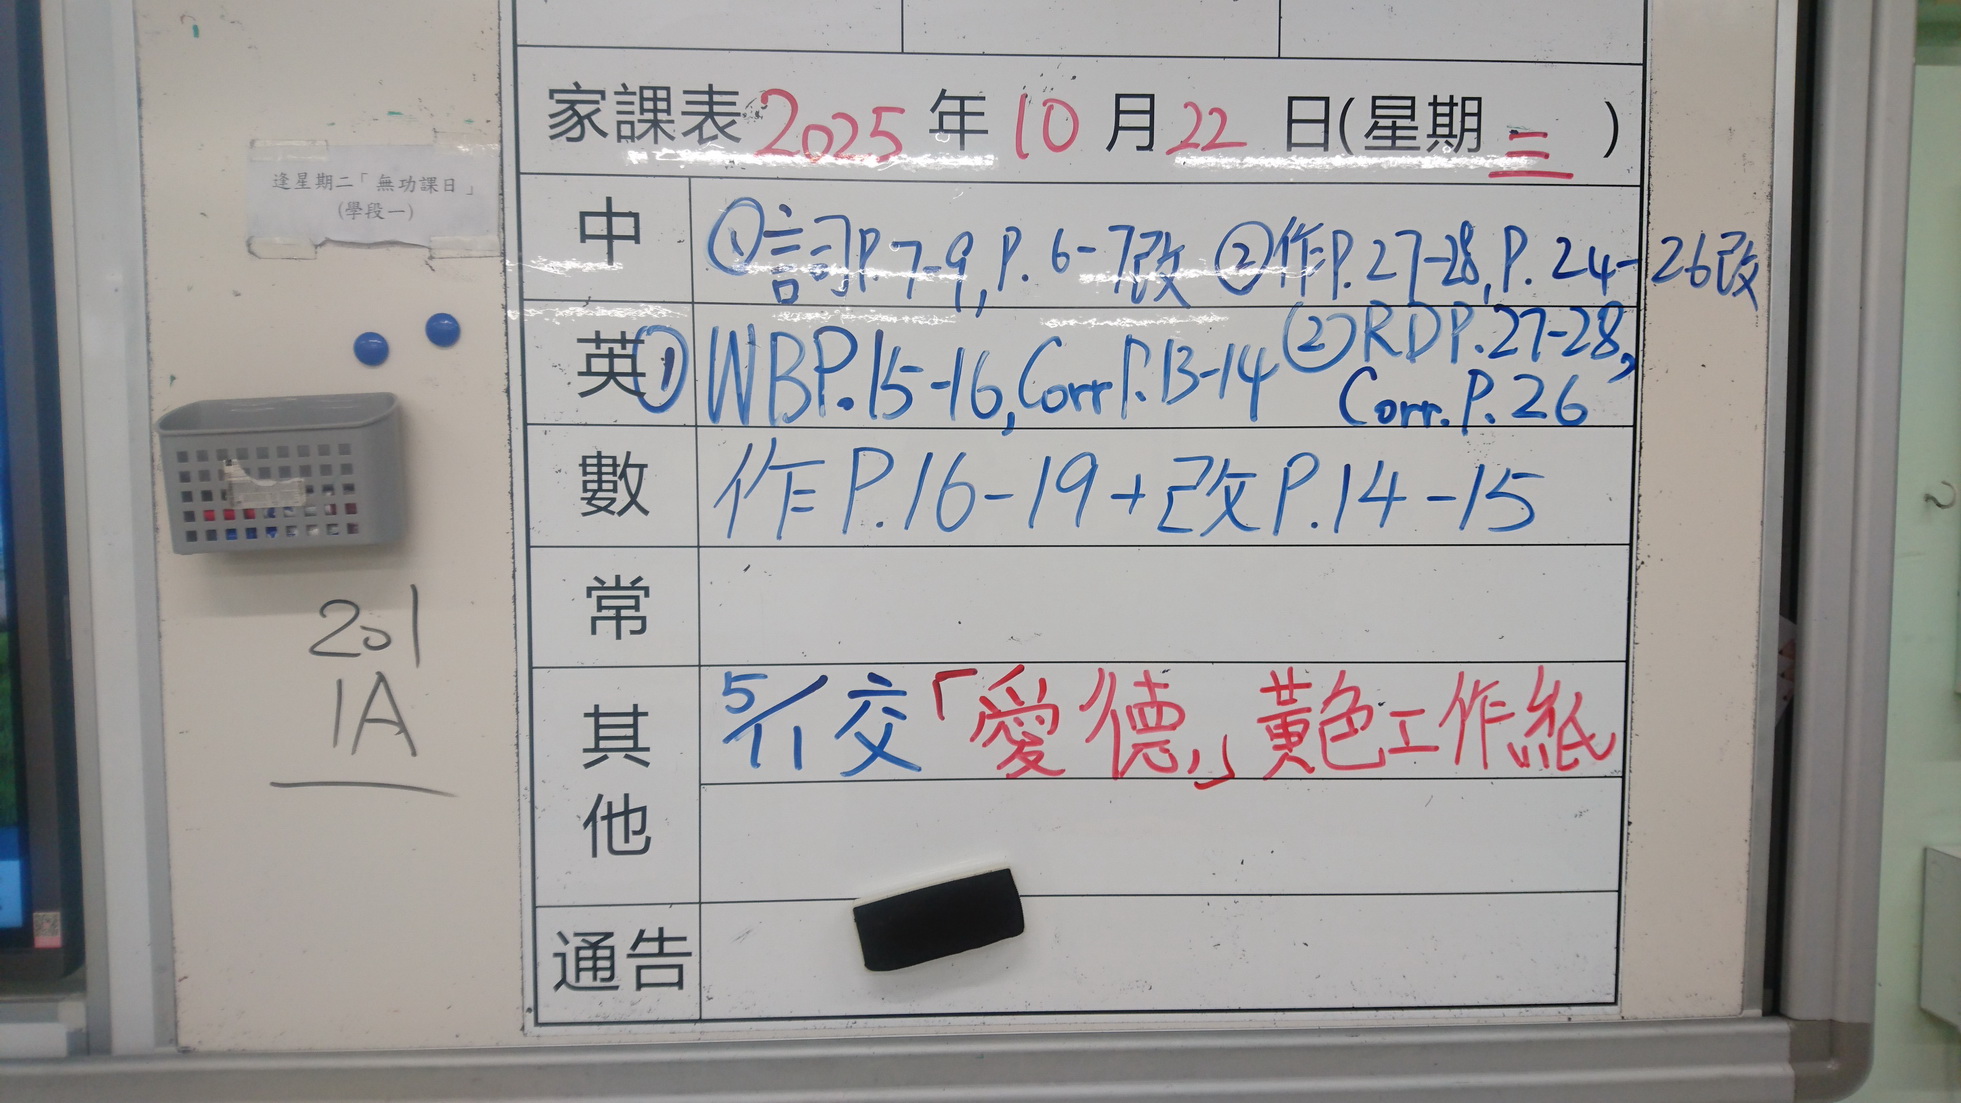 家課表 2025 年 10 月 22 日(星期 三 )
逢星期二「無功課日」
(學段一)
中 ①詞P.7-9, P.6-7改 ②作P.27-28, P.24-26改
英 ①WBP.15-16, Corr P.13-14 ②RDP.27-28,
Corr. P.26
數 作P.16-19+改P.14-15
常
201
1A
其他 5/11交「愛德」黃色工作紙
通告